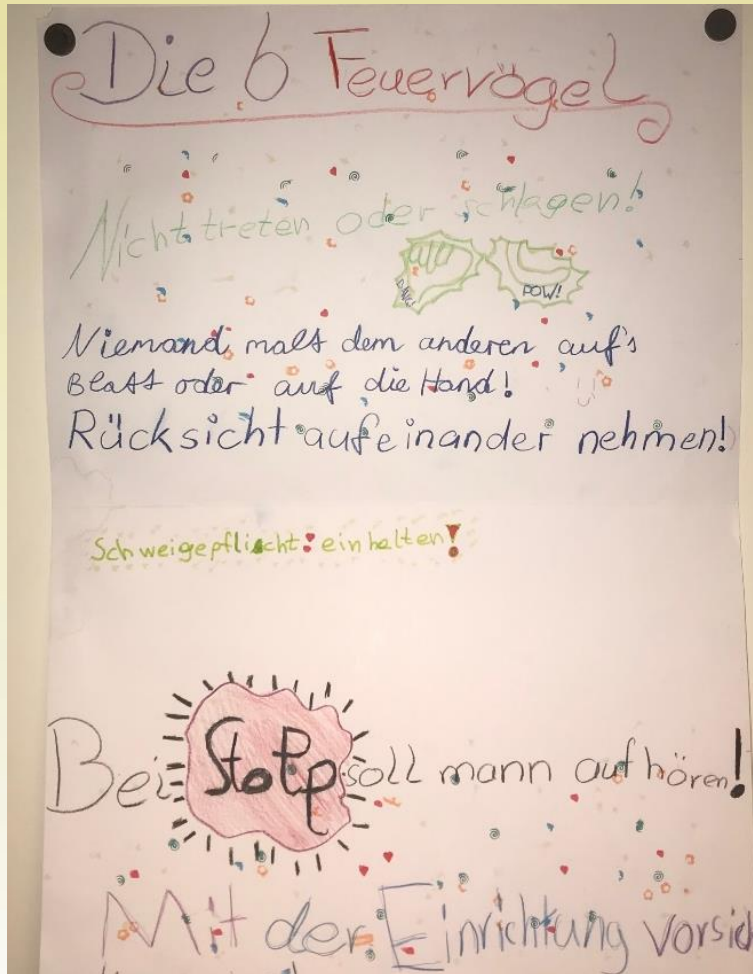 Die 6 Feuervögel
Nicht treten oder schlagen!
POW!
Niemand malt dem anderen auf's
Blatt oder auf die Hand!
Rücksicht aufeinander nehmen!
Schweigepflischt einhalten!
Bei Stopp soll mann aufhören!
Mit der Einrichtung